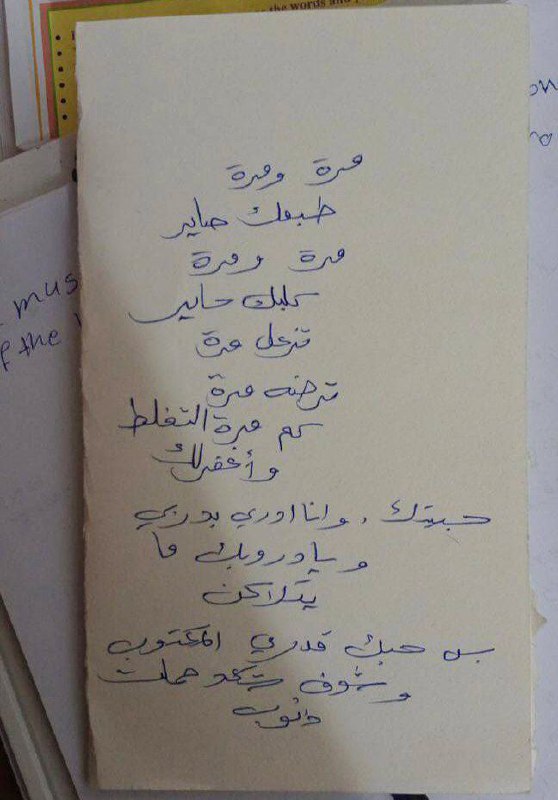 the words and
on
مرة ومرة
طبعك صاير
مرة ومرة
كلبك حاير
تزعل مرة
ترضه مرة
كم مرة التغلط
وأغفرلك
حبيتك . وانا ادري بدربي
ويا دروبك ما
يتلاكن
بس حبك قدري المكتوب
وشوف شكد حملت
ذنوب
mus
f the